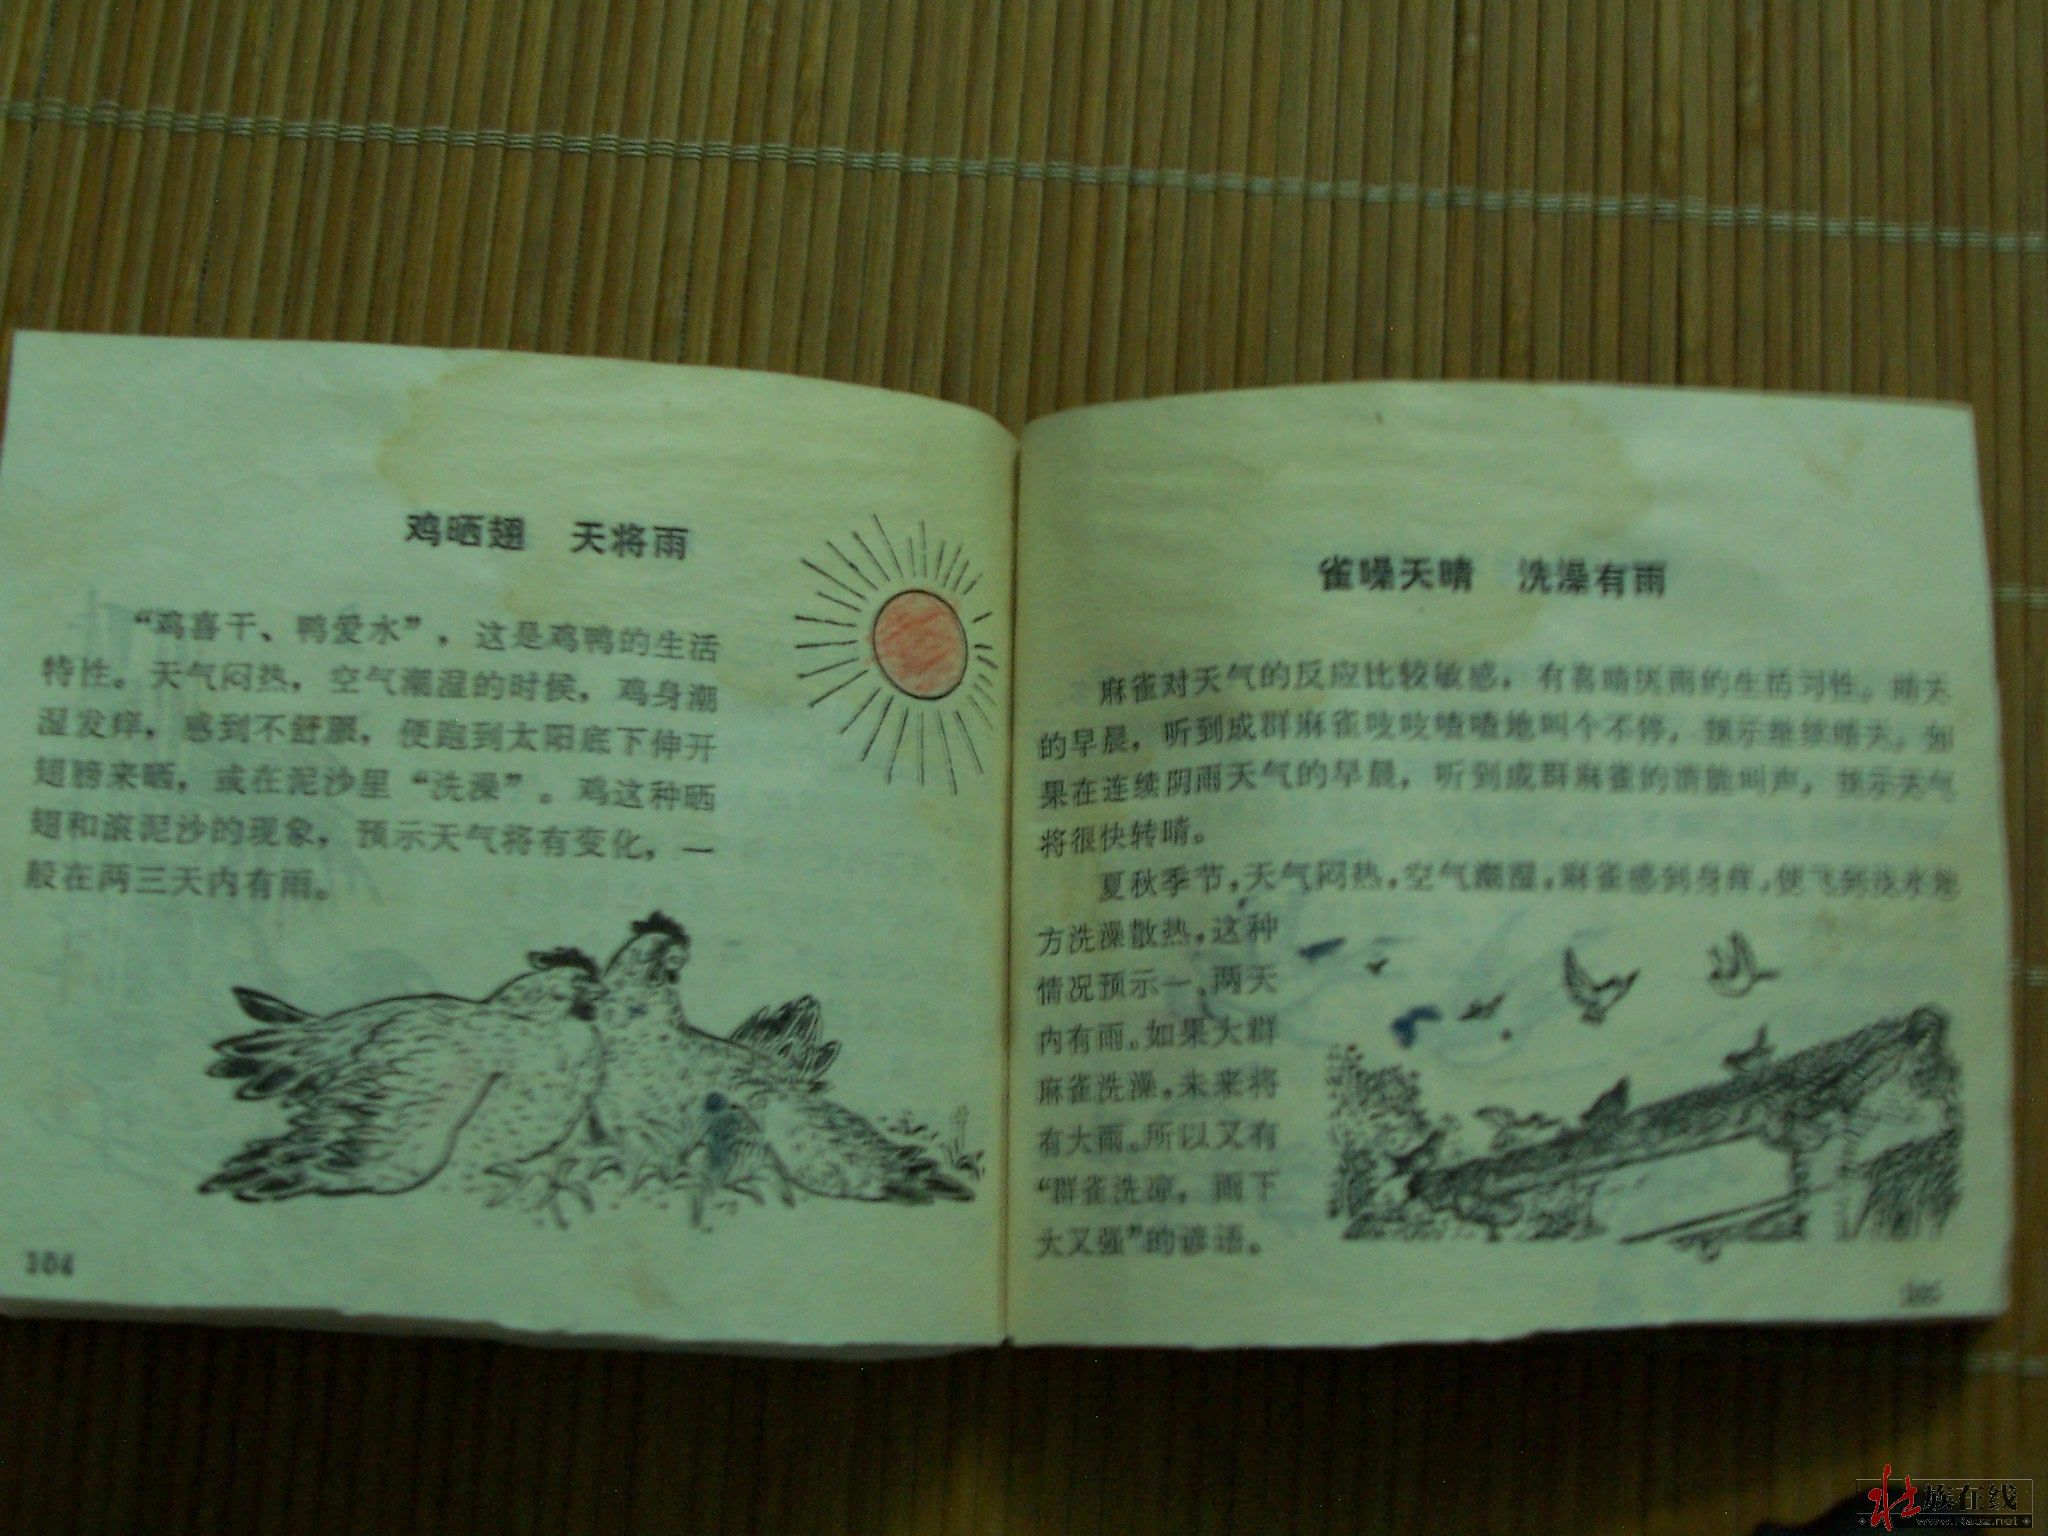 鸡晒翅 天将雨
“鸡喜干、鸭爱水”，这是鸡鸭的生活
特性。天气闷热，空气潮湿的时候，鸡身潮
湿发痒，感到不舒服，便跑到太阳底下伸开
翅膀来晒，或在泥沙里“洗澡”。鸡这种晒
翅和滚泥沙的现象，预示天气将有变化，一
般在两三天内有雨。
104
雀噪天晴 洗澡有雨
麻雀对天气的反应比较敏感，有喜晴厌雨的生活习性。晴天
的早晨，听到成群麻雀吱吱喳喳地叫个不停，预示继续晴天。如
果在连续阴雨天气的早晨，听到成群麻雀的清脆叫声，预示天气
将很快转晴。
夏秋季节，天气闷热，空气潮湿，麻雀感到身痒，便飞到浅水地
方洗澡散热，这种
情况预示一、两天
内有雨。如果大群
麻雀洗澡，未来将
有大雨。所以又有
“群雀洗凉，雨下
大又强”的谚语。
105
壮族在线
www.Rauz.net